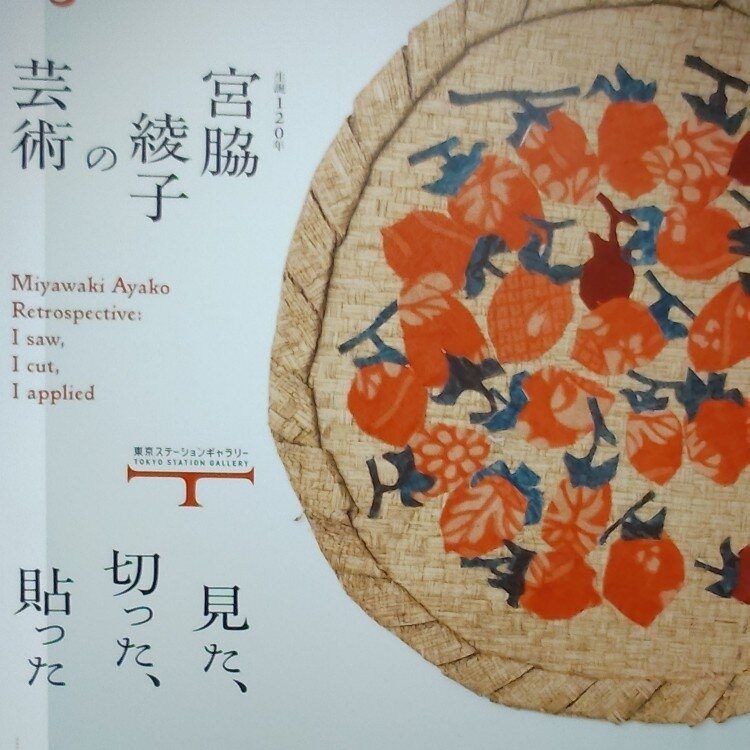 生誕120年
宮脇
綾子
の
芸術
Miyawaki Ayako
Retrospective:
I saw,
I cut,
I applied
東京ステーションギャラリー
TOKYO STATION GALLERY
見た、
切った、
貼った